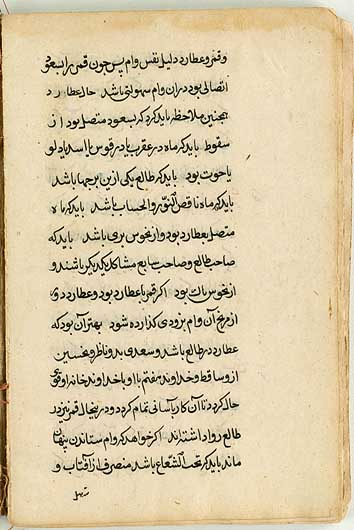 و قمر و عطارد دلیل نفس وام پس چون قمر را بسعود
اتصالی بود در آن وام سهولتی باشد حال عطارد
همچنین ملاحظه باید کرد که بسعود متصل بود از
سقوط باید که ماه در عقرب یا در قوس یا اسد یا دلو
یا حوت بود باید که طالع یکی ازین برجها باشد
باید که ماه ناقص النور و الحساب باشد باید که ماه
متصل بعطارد بود و از نحوس بری باشد باید که
صاحب طالع و صاحب سابع مشاکل یکدیکر باشند و
از نحوس پاک بود اکر قمر با عطارد بود و عطارد
از مریخ آن وام بزودی کذارده شود بهتر آن بود که
عطارد در طالع باشد و سعدی بدو ناظر و نحسین
ازو ساقط و خداوند هفتم با او یا خداوند خانه او
حال کرده تا آن کار بآسانی تمام کردد و درینحال قمر نیز در
طالع روا داشته‌اند اکر خواهد که وام ستاندن پنهان
ماند باید که تحت الشعاع باشد منصرف از آفتاب و